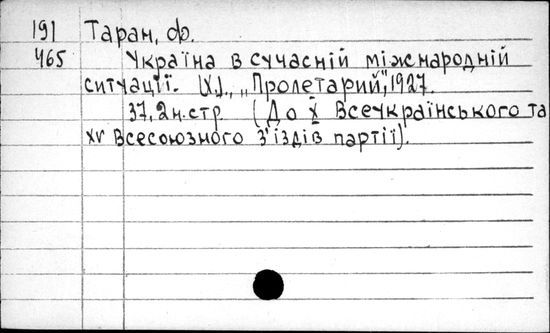 191 Таран, Ф.
465 Україна в сучасній міжнародній
ситуації. [Х], „Пролетарий", 1927.
37, 2н.стр (До X Всеукраїнського та
XV Всесоюзного з'їздів партії).